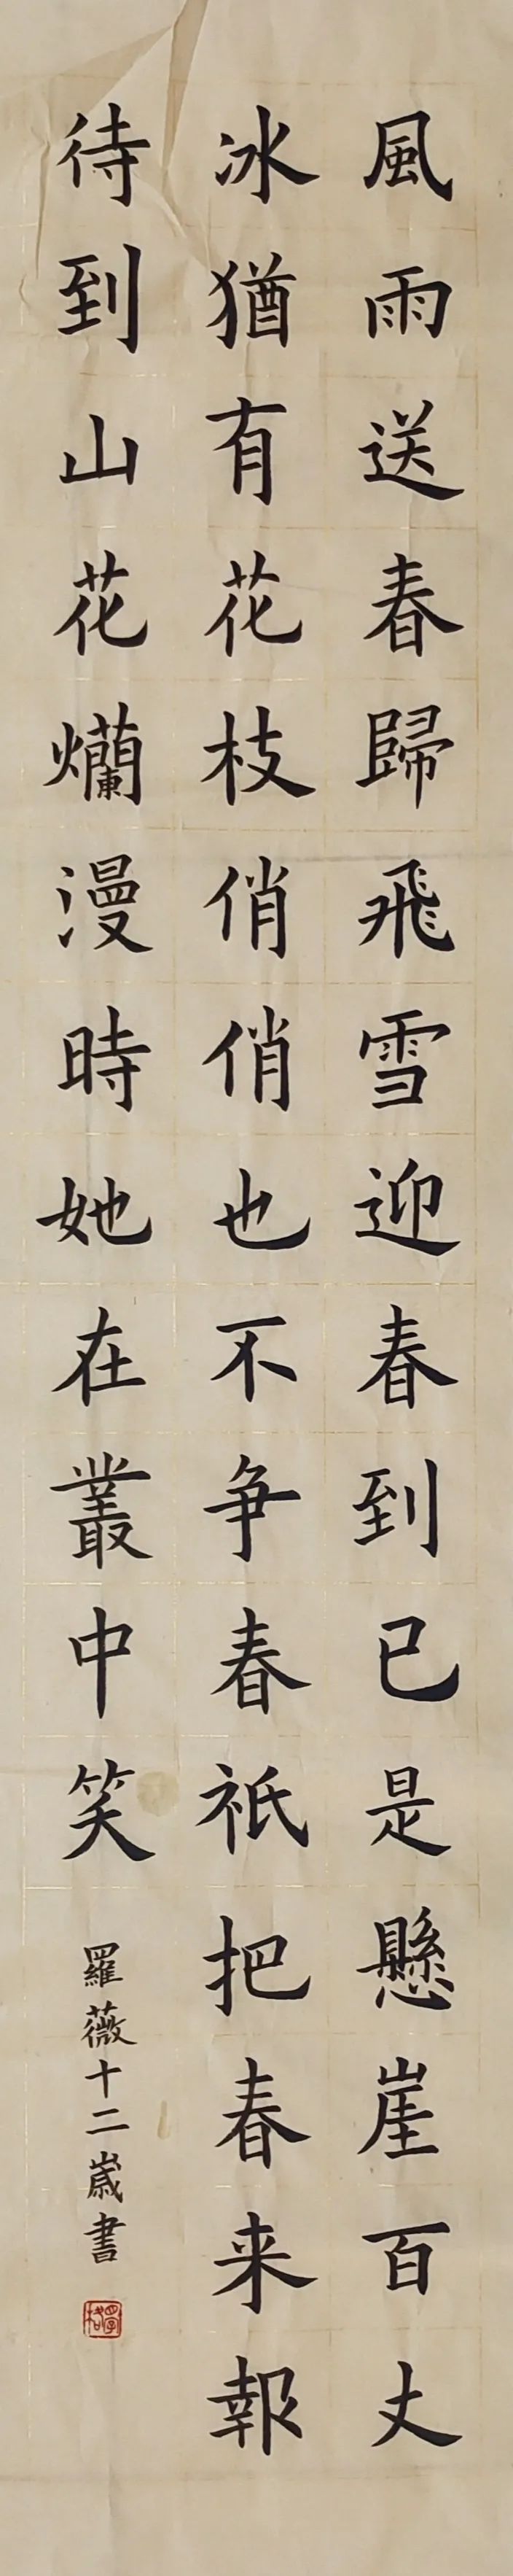 風雨送春歸飛雪迎春到已是懸崖百丈
冰猶有花枝俏俏也不争春祇把春来報
待到山花爛漫時她在叢中笑
羅薇十二歲書